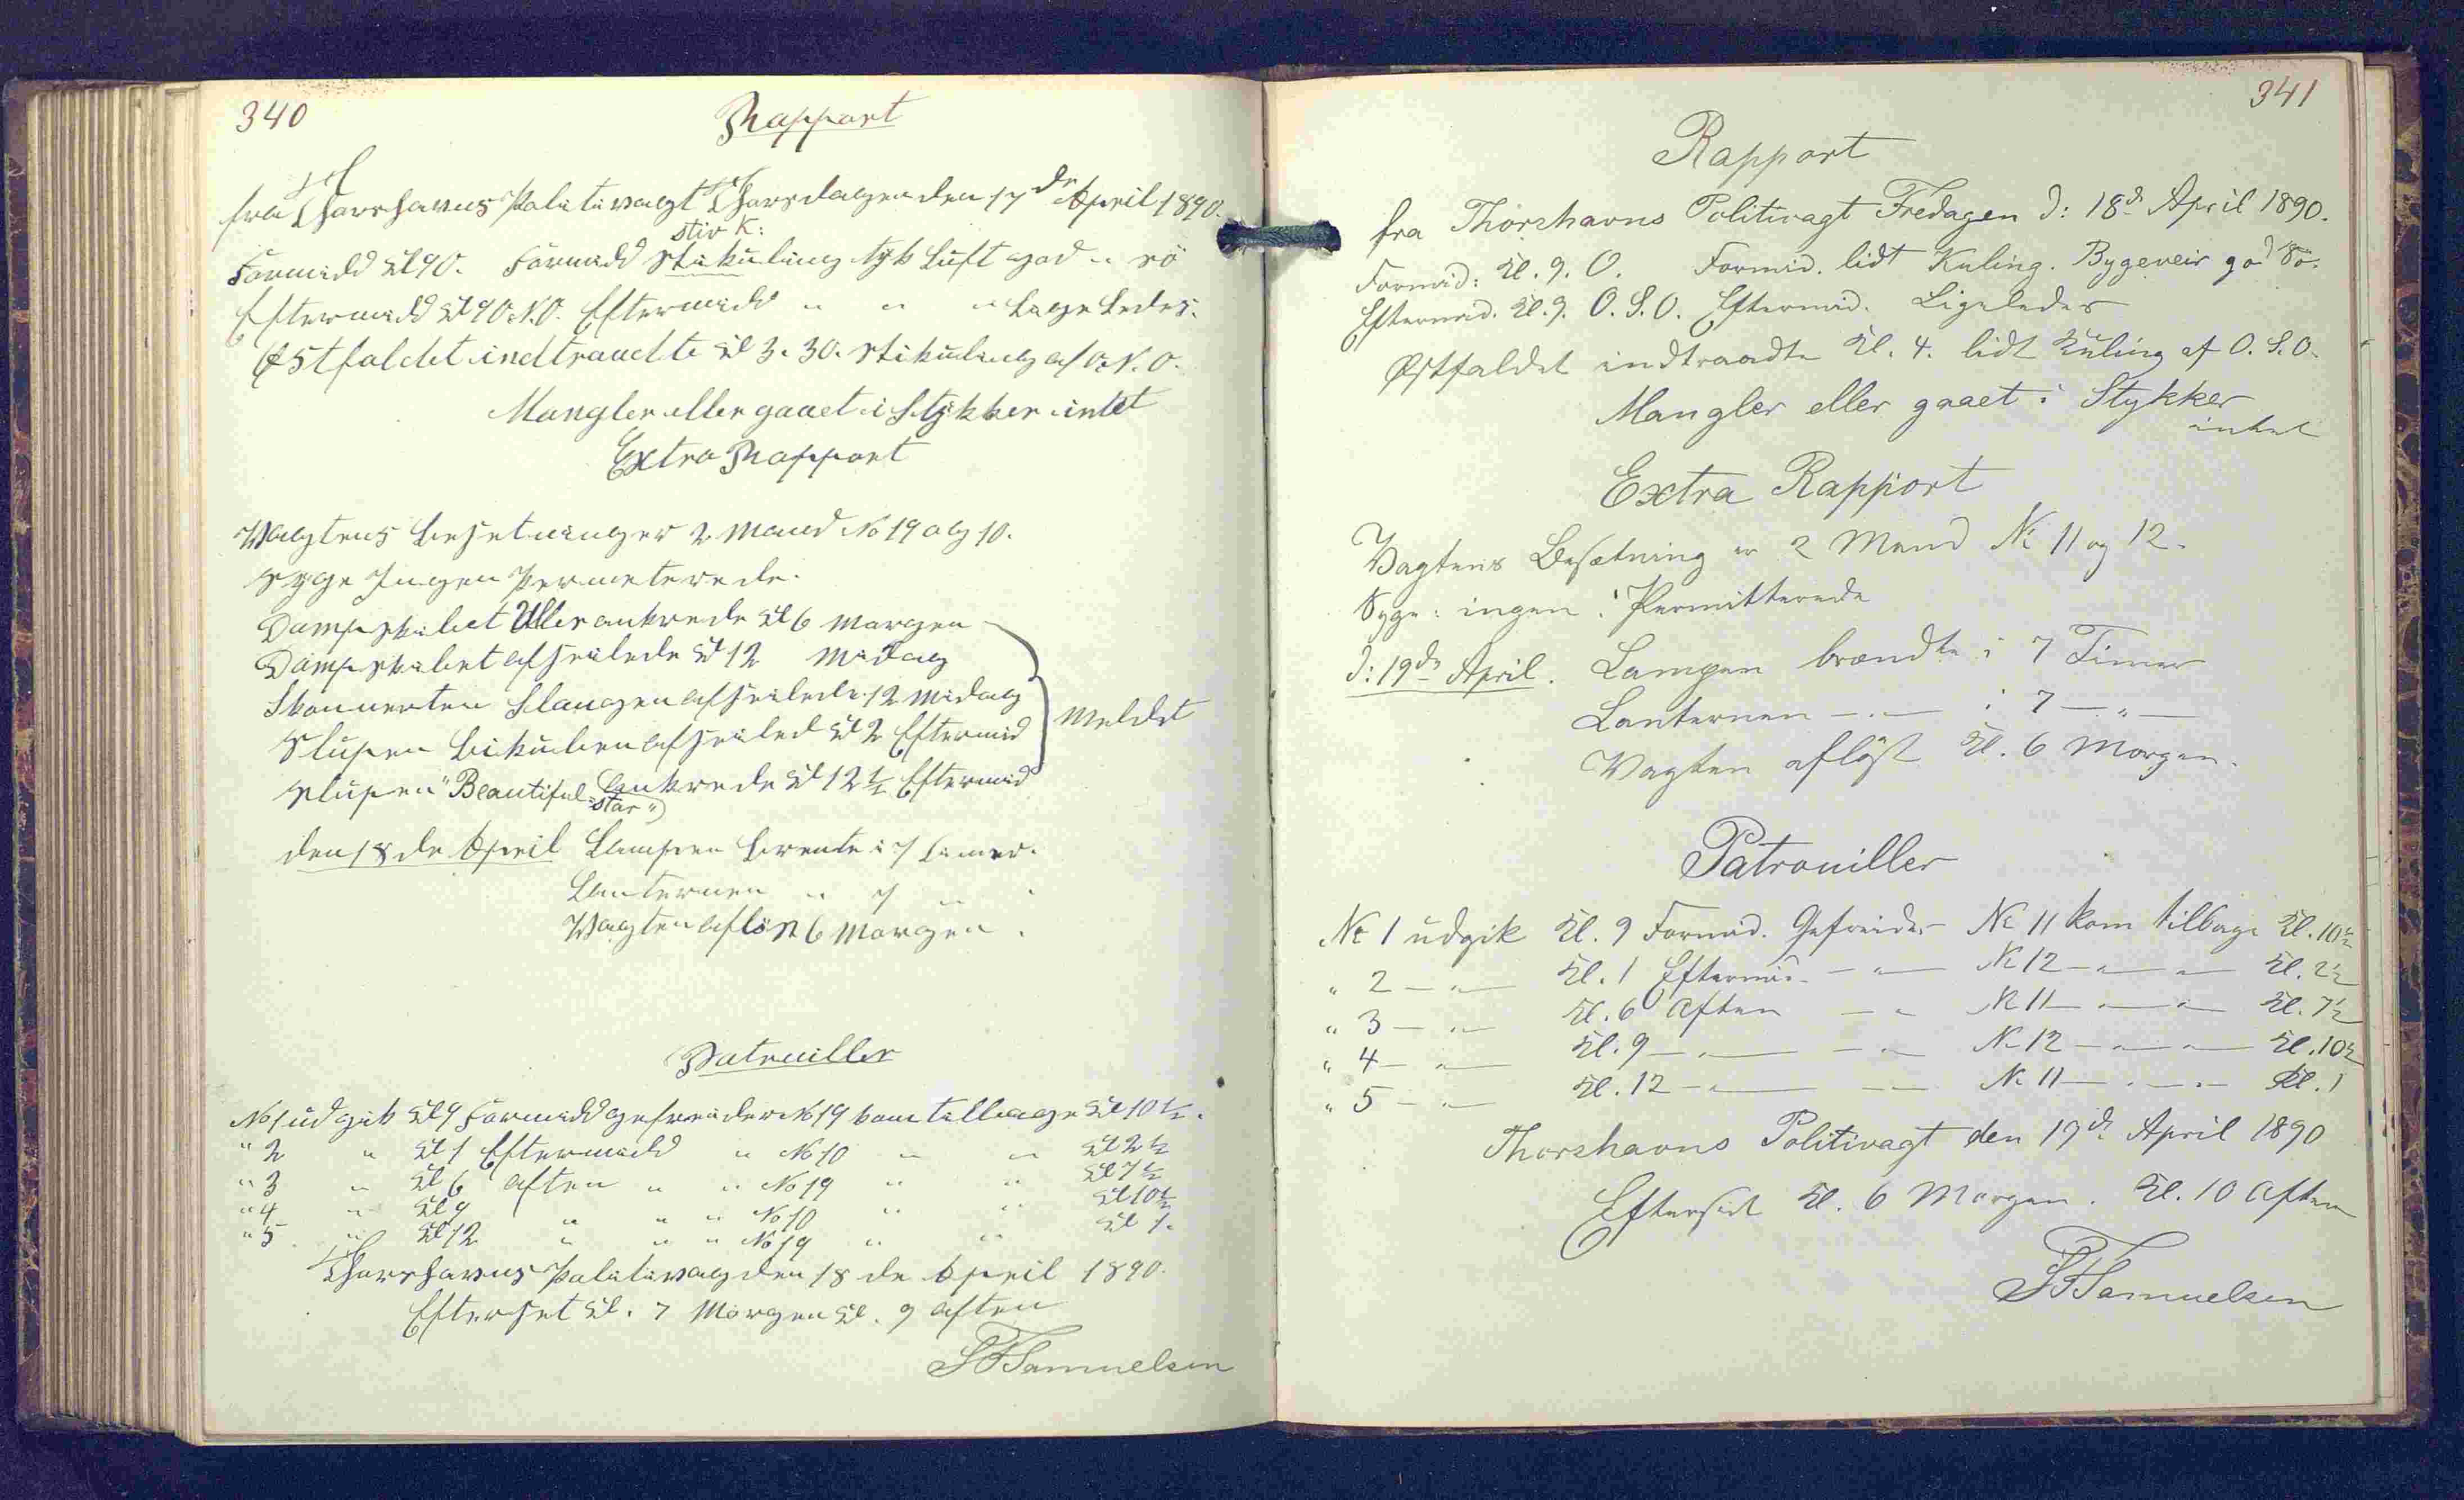 340
Rapport
fra Thorshavns Politivagt Thorsdagen den 17de April 1890.
stiv K:
Formidd Kl 9 O. Formidd Stikuling tyk Luft god " sö
Eftermidd Kl 9 O.N.O. Eftermidd " " " Lige Ledes.
Østfaldet indtraadte Kl 3.30. Stikuling af O.N.O.
Mangler eller gaaet i Stykker intet
Extra Rapport
Vagtens Besetninger 2 Mand No 19 og 10.
Syge Ingen Permeterede.
Dampskibet Uller ankrede Kl 6 Morgen
Dampskibet afseilede Kl 12 Midag
Skonnerten Slangen afseilede 12 Midag
Meldet
Slupen afseiled Kl 2 Eftermid
Slupen "Beautiful ankrede Kl 12 1/2 Eftermid
star"
den 18de April Lampen brente i 7 timer.
Lanternen " 7 "
Vagten aflöst 6 Morgen.
Patruiller
No 1 udgik Kl 9 Formidd gefreider No 19 kom tilbage Kl 10 1/2.
" 2 " Kl 1 Eftermidd " No 10 " " Kl 2 1/2
" 3 " Kl 6 aften " " No 19 " " Kl 7 1/2
" 4 " Kl 9 " " " No 10 " " Kl 10 1/2
" 5 " Kl 12 " " " No 19 " " Kl 1.
Thorshavns Politivag den 18de April 1890.
Efterset Kl. 7 Morgen Kl. 9 aften
Samuelsen
341
Rapport
fra Thorshavns Politivagt Fredagen d: 18de April 1890.
Formid: Kl. 9. O. Formid. lidt Kuling. Bygeveir god Sö.
Eftermid. Kl. 9. O.S.O. Eftermid. Ligeledes
Østfaldet indtraadte Kl. 4. lidt Kuling af O.S.O.
Mangler eller gaaet i Stykker
intet
Extra Rapport
Vagtens Besætning er 2 Mand No 11 og 12.
Syge: ingen: Permitterede
d: 19de April. Lampen brændte i 7 Timer
Lanternen — " — i 7 — " —
Vagten aflöst Kl. 6 Morgen.
Patrouiller
No 1 udgik Kl. 9 Formid. Gefreider No 11 kom tilbage Kl. 10 1/2
" 2 — " — Kl. 1 Eftermid. — " — No 12 — " — " — Kl. 2 1/2
" 3 — " — Kl. 6 Aften — " — No 11 — " — " — Kl. 7 1/2
" 4 — " — Kl. 9 — " — — " — No 12 — " — " — Kl. 10 1/2
" 5 — " — Kl. 12 — " — — " — No 11 — " — " — Kl. 1
Thorshavns Politivagt den 19de April 1890
Efterset Kl. 6 Morgen. Kl. 10 Aften
Samuelsen